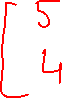 [5
4